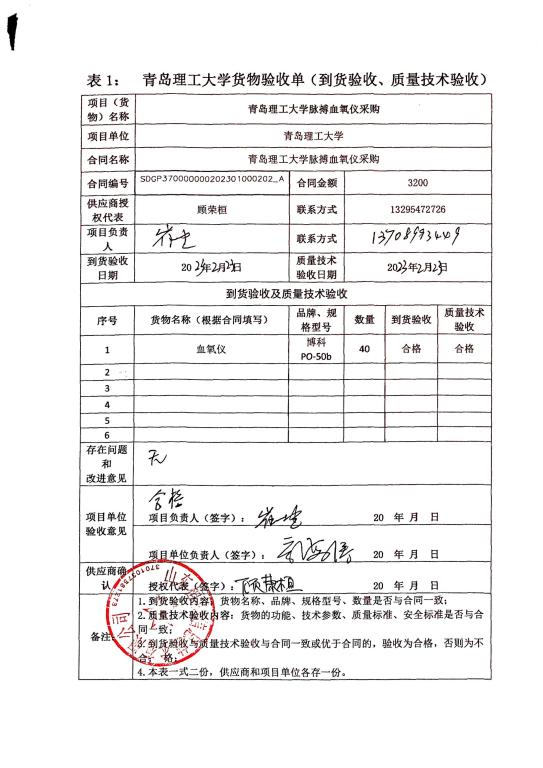 表 1： 青岛理工大学货物验收单（到货验收、质量技术验收）
项目（货物）名称 青岛理工大学脉搏血氧仪采购
项目单位 青岛理工大学
合同名称 青岛理工大学脉搏血氧仪采购
合同编号 SDGP370000000202301000202_A 合同金额 3200
供应商授权代表 顾荣桓 联系方式 13295472726
项目负责人 联系方式
到货验收日期 2023年2月23日 质量技术验收日期 2023年2月23日
到货验收及质量技术验收
序号 货物名称（根据合同填写） 品牌、规格型号 数量 到货验收 质量技术验收
1 血氧仪 博科 PO-50b 40 合格 合格
2
3
4
5
6
存在问题和改进意见 无
项目单位验收意见 合格
项目负责人（签字）： 20 年 月 日
项目单位负责人（签字）： 20 年 月 日
供应商确认 授权代表（签字）：顾荣桓 20 年 月 日
备注
1.到货验收内容：货物名称、品牌、规格型号、数量是否与合同一致；
2.质量技术验收内容：货物的功能、技术参数、质量标准、安全标准是否与合同一致；
3.到货验收与质量技术验收与合同一致或优于合同的，验收为合格，否则为不合格；
4.本表一式二份，供应商和项目单位各存一份。